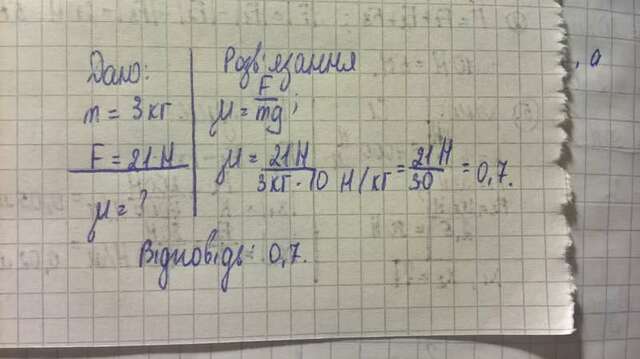 Дано:
m = 3 кг.
F = 21 Н
μ = ?
Розв'язання
μ = F/mg;
μ = 21 Н/3 кг · 10 Н/кг = 21 Н/30 = 0,7.
Відповідь: 0,7.
, а